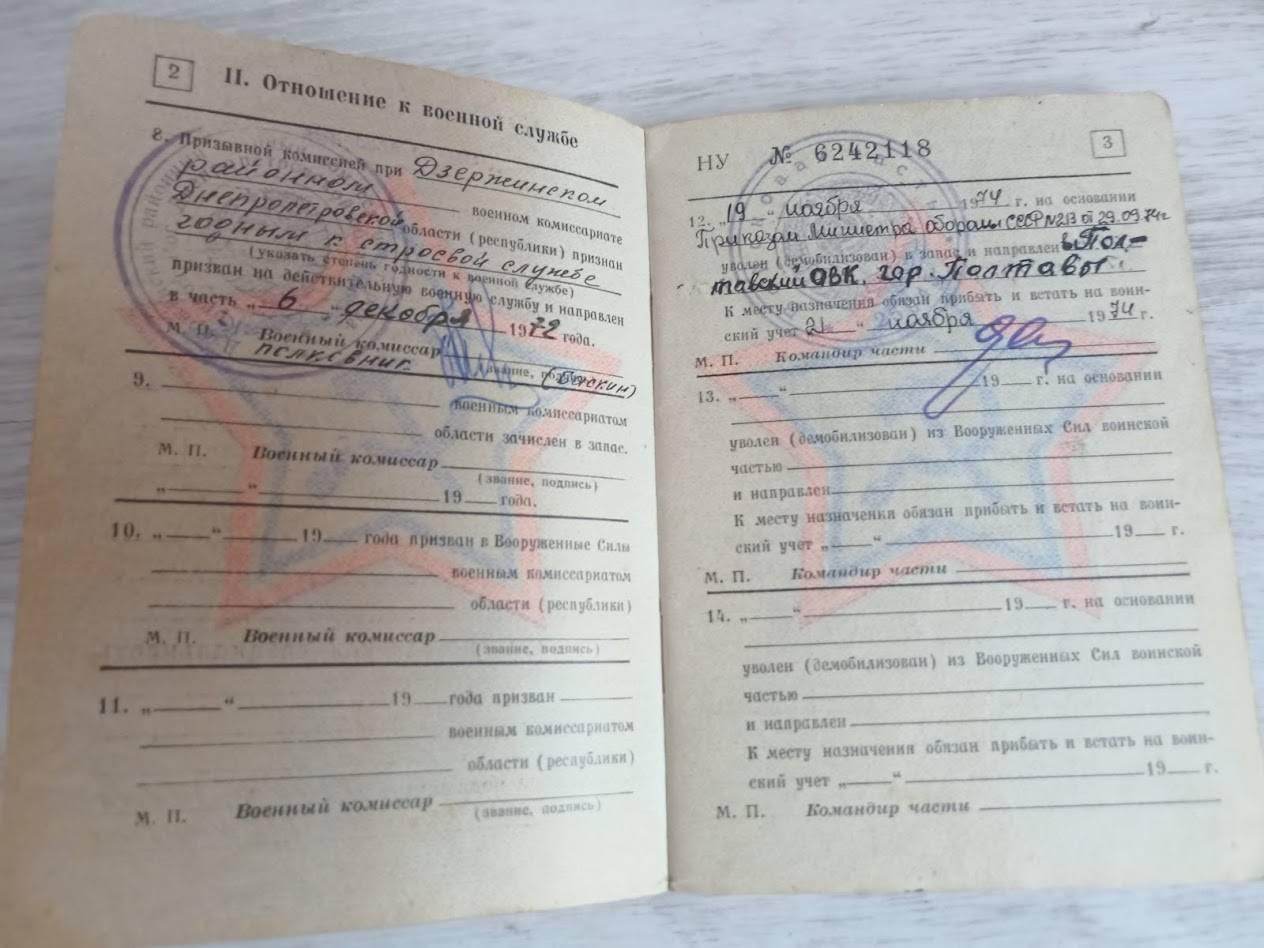 2
II. Отношение к военной службе
8. Призывной комиссией при Дзержинском
районном военном комиссариате
Днепропетровской области (республики) признан
годным к строевой службе
(указать степень годности к военной службе)
призван на действительную военную службу и направлен
в часть „ 6 “ декабря 1972 года.
М. П. Военный комиссар
полковник (звание, подпись)
9.
военным комиссариатом
области зачислен в запас.
М. П. Военный комиссар
(звание, подпись)
„ “ 19 года.
10. „ “ 19 года призван в Вооруженные Силы
военным комиссариатом
области (республики)
М. П. Военный комиссар
(звание, подпись)
11. „ “ 19 года призван
военным комиссариатом
области (республики)
М. П. Военный комиссар
(звание, подпись)
НУ № 6242118
3
12. „ 19 “ ноября 1974 г. на основании
Приказа Министра обороны СССР N213 от 29.09.74г
уволен (демобилизован) в запас и направлен в Пол-
тавский ОВК, гор. Полтавы
К месту назначения обязан прибыть и встать на воин-
ский учет 21 “ ноября 1974 г.
М. П. Командир части
13. „ “ 19 г. на основании
уволен (демобилизован) из Вооруженных Сил воинской
частью
и направлен
К месту назначения обязан прибыть и встать на воин-
ский учет „ “ 19 г.
М. П. Командир части
14. „ “ 19 г. на основании
уволен (демобилизован) из Вооруженных Сил воинской
частью
и направлен
К месту назначения обязан прибыть и встать на воин-
ский учет „ “ 19 г.
М. П. Командир части